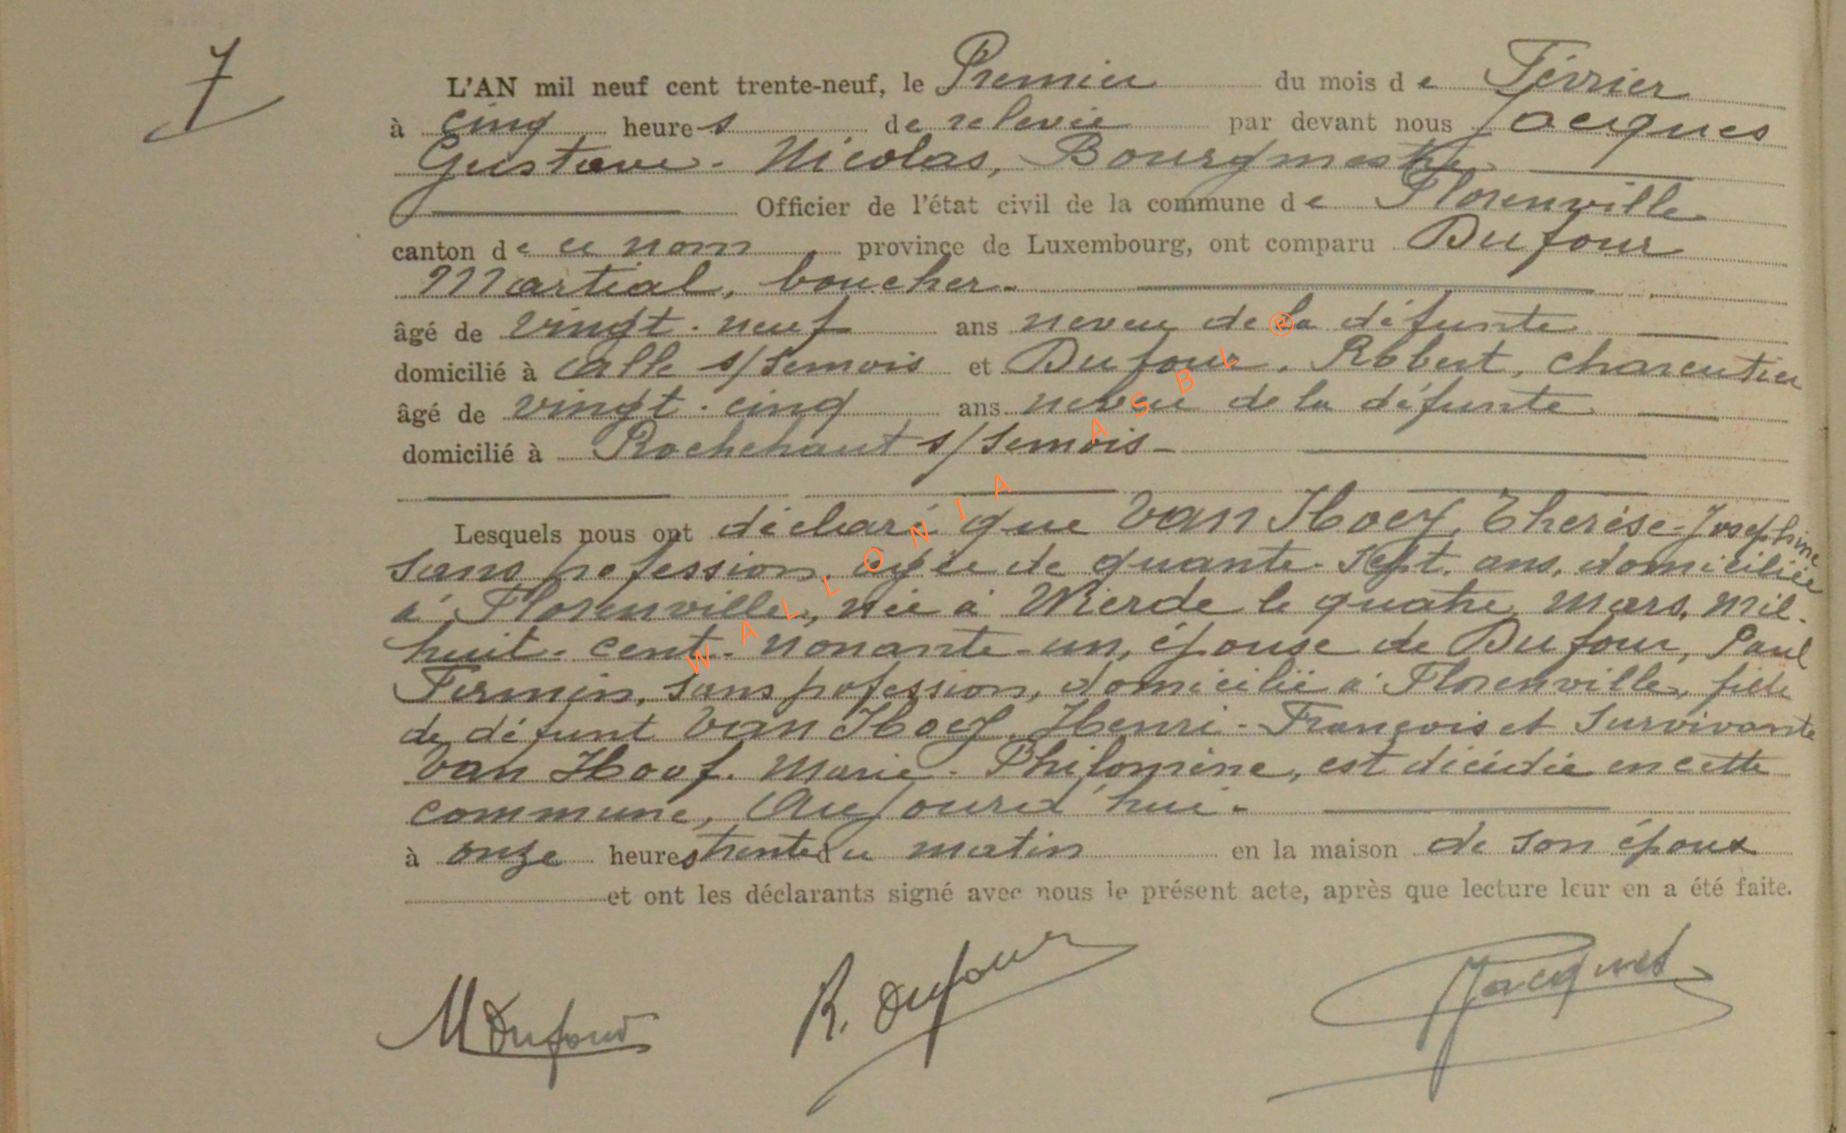 7
L'AN mil neuf cent trente-neuf, le Premier du mois de Février
à cinq heures de relevée par devant nous Jacques
Gustave-Nicolas, Bourgmestre
Officier de l'état civil de la commune de Florenville
canton de ce nom province de Luxembourg, ont comparu Dufour
Martial, boucher.
âgé de vingt-neuf ans neveu de la défunte
domicilié à Laiche s/Semois et Dufour, Robert, charcutier
âgé de vingt-cinq ans neveu de la défunte
domicilié à Rochehaut s/Semois
Lesquels nous ont déclaré que Van Hoey, Thérèse-Josephine
sans profession, agée de quante-sept ans, domiciliée
à Florenville, née à Wierde le quatre mars mil-
huit-cent-nonante-un, épouse de Dufour, Paul
Firmin, sans pofession, domicilié à Florenville, fille
de défunt Van Hoey, Henri-François et survivante
Van Hoof. Marie-Philomène, est décédée en cette
commune, Aujourd'hui-
à onze heures trente du matin en la maison de son époux
et ont les déclarants signé avec nous le présent acte, après que lecture leur en a été faite.
MDufour R. Dufour Jacques
WALLONIA ASBL ®